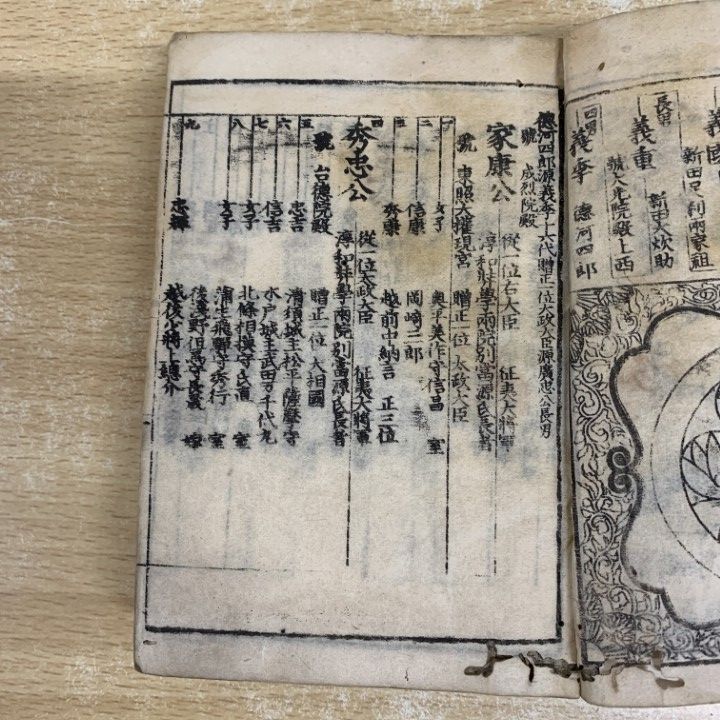 義國
新田足利兩家祖
長男
義重
新田大炊助
號大光院殿上西
四男
義季
德河四郎
德河四郎源義季十六代贈正一位太政大臣源廣忠公長男
號 成烈院殿
家康公 從一位右大臣 征夷大將軍
淳和弉學兩院別當源氏長者
號 東照大權現宮 贈正一位 太政大臣
一 女子 奥平美作守信昌 室
二 信康 岡崎三郎
三 秀康 越前中納言 正三位
四 秀忠公 從一位太政大臣 征夷大將軍
淳和弉學兩院別當源氏長者
號 台德院殿 贈正一位 大相國
五 忠吉 清須城主松平薩摩守
六 信吉 水戸城主武田万千代丸
七 女子 北條相摸守氏直 室
八 女子 蒲生飛騨守秀行 室
後淺野但馬守長晟 嫁
九 忠輝 越後少將上總介